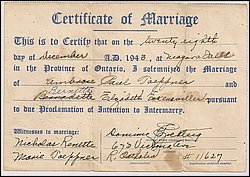 Certificate of Marriage
This is to Certify that on the twenty eighth
day of December A.D. 1943, at Niagara Falls
in the Province of Ontario, I solemnised the Marriage
of Ambrose Paul Toeppner
and Bernadette Elizabeth pursuant
to due Proclamation of Intention to Intermarry.
Witnesses to marriage:
Nicholas Ronette
Marie Toeppner
673 Victoria
R. No. 11627